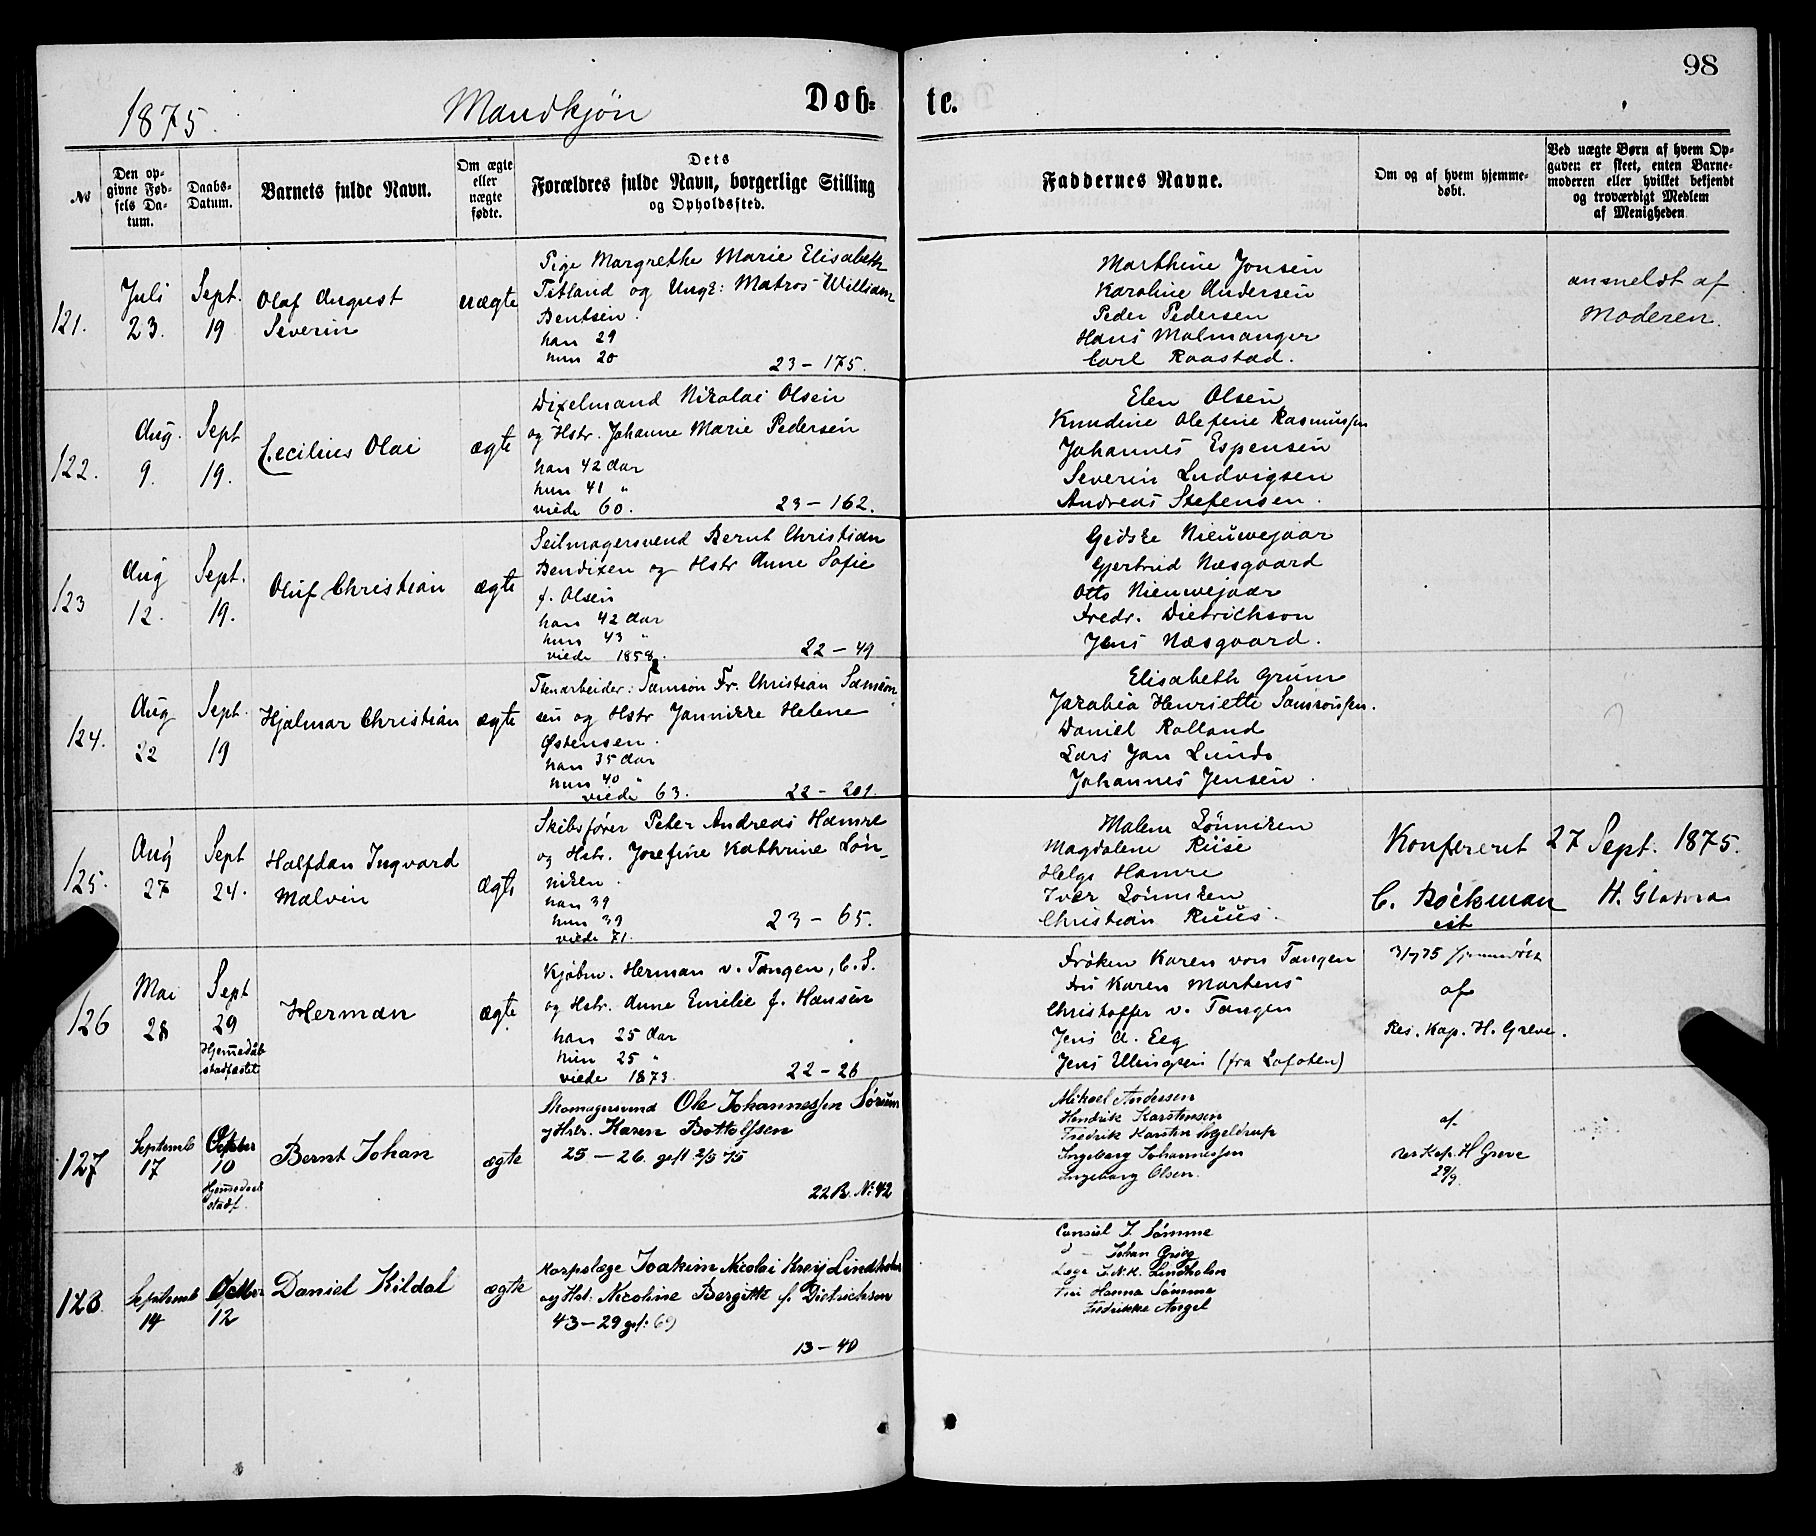 98
1875. Mandkjøn Døb- te.
No
Den op-
givne Fød-
sels Da-
tum.
Daabs-
Datum.
Barnets fulde Navn.
Om ægte
eller
uægte
fødte.
Dets
Forældres fulde Navn, borgerlige Stilling
og Opholdssted.
Faddernes Navne.
Om og af hvem hjemme-
døbt.
Ved uægte Børn af hvem Op-
gaven er skeet, enten Barne-
moderen eller hvilket bekjendt
og troværdigt Medlem
af Menigheden
121.
Juli
23.
Sept.
19
Olaf August
Severin
uægte
Pige Margrethe Marie Elisabeth
Titland og Ungk: Matros William
Bentsen.
han 29
hun 20
23 - 175.
Marthine Jonsen
Karoline Andersen
Peder Pedersen
Hans Malmanger
Carl Raastad.
anmeldt af
Moderen.
122.
Aug.
9.
Sept
19.
Cecilius Olai
ægte
Dixelmand Nikolai Olsen
og Hstr. Johanne Marie Pedersen
han 42 Aar
hun 41 "
viede 60.
23 - 162.
Elen Olsen
Knudine Olefine Rasmussen
Johannes Espensen
Severin Ludvigsen
Andreas Stefensen.
123
Aug
12.
Sept.
19.
Oluf Christian
ægte
Seilmagersvend Bernt Christian
Bendixen og Hstr Anne Sofie
f. Olsen
han 42 Aar
hun 43 "
viede 1858.
22 - 49
Gidske Nieuwejaar
Gjertrud Næsgaard
Otto Nieuwejaar
Fredr. Dietrichson
Jens Næsgaard.
124.
Aug
22
Sept.
19
Hjalmar Christian
ægte
Stenarbeider: Samson Fr. Christian Samson
sen og Hstr Jannikke Helene
Østensen.
han 35 Aar
hun 40 "
viede 63.
22 - 201.
Elisabeth Grum
Jakobia Henriette Samsonsen.
Daniel Rolland
Lars Jan Lunde
Johannes Jensen.
125.
Aug
27
Sept
24.
Halfdan Ingvard
Malvin
ægte
Skibsfører Peter Andreas Hamre
og Hstr. Josefine Kathrine Løn-
niken.
han 39
hun 39
viede 71.
23 - 65.
Malene Lønniken
Magdalene Riise
Helge Hamre
Iver Lønniken
Christian Ruus.
Konfereret 27 Sept. 1875.
C. Bøckman
126
Mai
28
Sept
29
Hjemedåb
stadfæstet
Herman
ægte
Kjøbm. Herman v. Tangen, C. S.
og Hstr. Anne Emilie f. Hansen
han 25 Aar
hun 25 "
viede 1873.
22 - 26
Frøken Karen von Tangen
Fru Karen Martens
Christoffer v. Tangen
Jens A. Eeg
Jens Ellingsen (fra Lofoten)
af
Res. Kap. H. Greve.
127
Septemb
17
October
10
Hjemedaab
stadf.
Bernt Johan
ægte
Skomagersvend Ole Johannessen Sørum
og Hstr. Karen Bottolfsen
25 - 26. gift 2/5 75
22 B. No: 42
Mikael Andersen
Hendrik Karstensen
Fredrik Karsten Segeldrup
Ingeborg Johannessen
Ingeborg Olsen.
af
res Kap. H Greve
29/9.
128.
Septemb
14
October
12
Daniel Kildal
ægte
Korpslæge Joakim Nicolai Krey Lindholm
og Hst. Nicoline Bergitte f. Dietrichson
43 - 29 gif: 69
13 - 40
Consul J. Sømme
Johan Grieg
Læge J. N. K. Lindholm
Fru Hanna Sømme
Fredrikke Angel